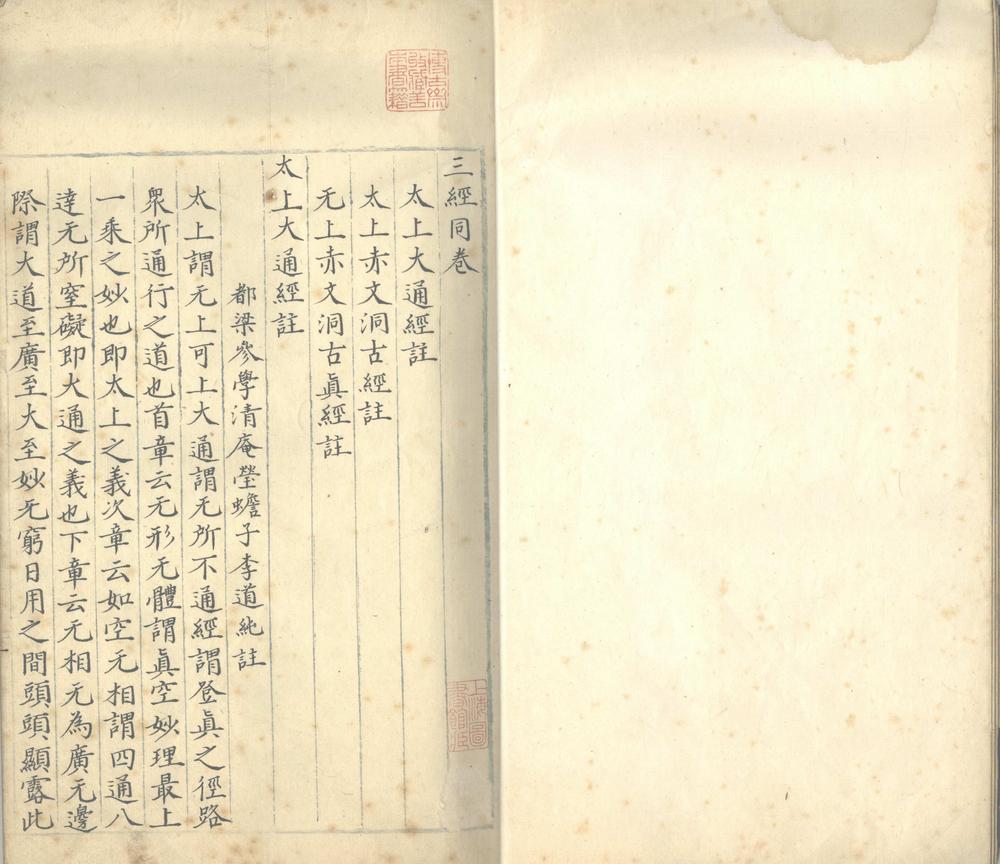 三經同卷
太上大通經註
太上赤文洞古經註
无上赤文洞古眞經註
太上大通經註
都梁參學清庵瑩蟾子李道純註
太上謂无上可上大通謂无所不通經謂登眞之徑路
衆所通行之道也首章云无形无體謂眞空妙理最上
一乘之妙也即太上之義次章云如空无相謂四通八
達无所窒礙即大通之義也下章云无相无為廣无邊
際謂大道至廣至大至妙无窮日用之間頭頭顯露此
上海圖書館藏